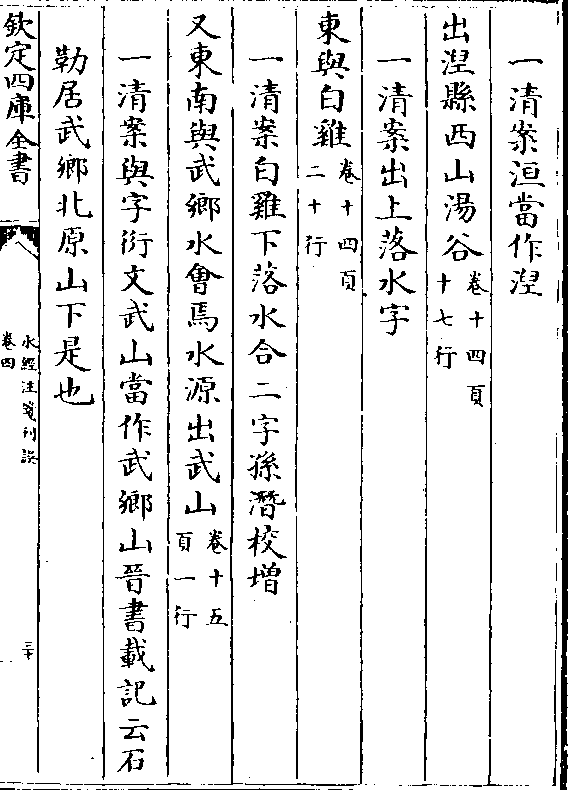 一清案洹當作湼
出湼縣西山湯谷卷十四頁十七行
一清案出上落水字
東與白雞卷十四頁二十行
一清案白雞下落水合二字孫潛校增
又東南與武鄉水會焉水源出武山卷十五頁一行
一清案與字衍文武山當作武鄉山晉書載記云石
勒居武鄉北原山下是也
欽定四庫全書
水經注箋刋誤
卷四
三十